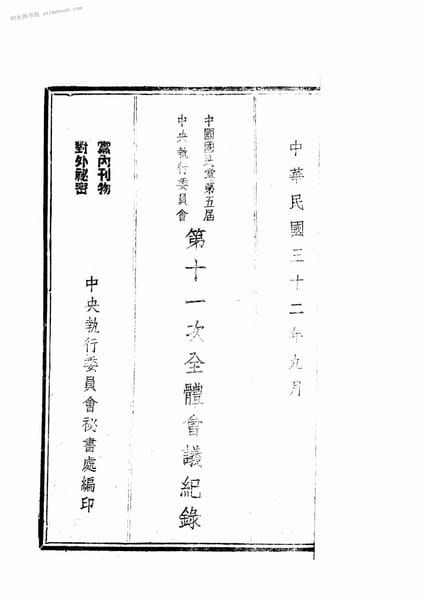 时光图书馆 atimebook.com
中華民國三十二年九月
中國國民黨第五屆
中央執行委員會
第十一次全體會議紀錄
黨內刊物
對外祕密
中央執行委員會祕書處編印